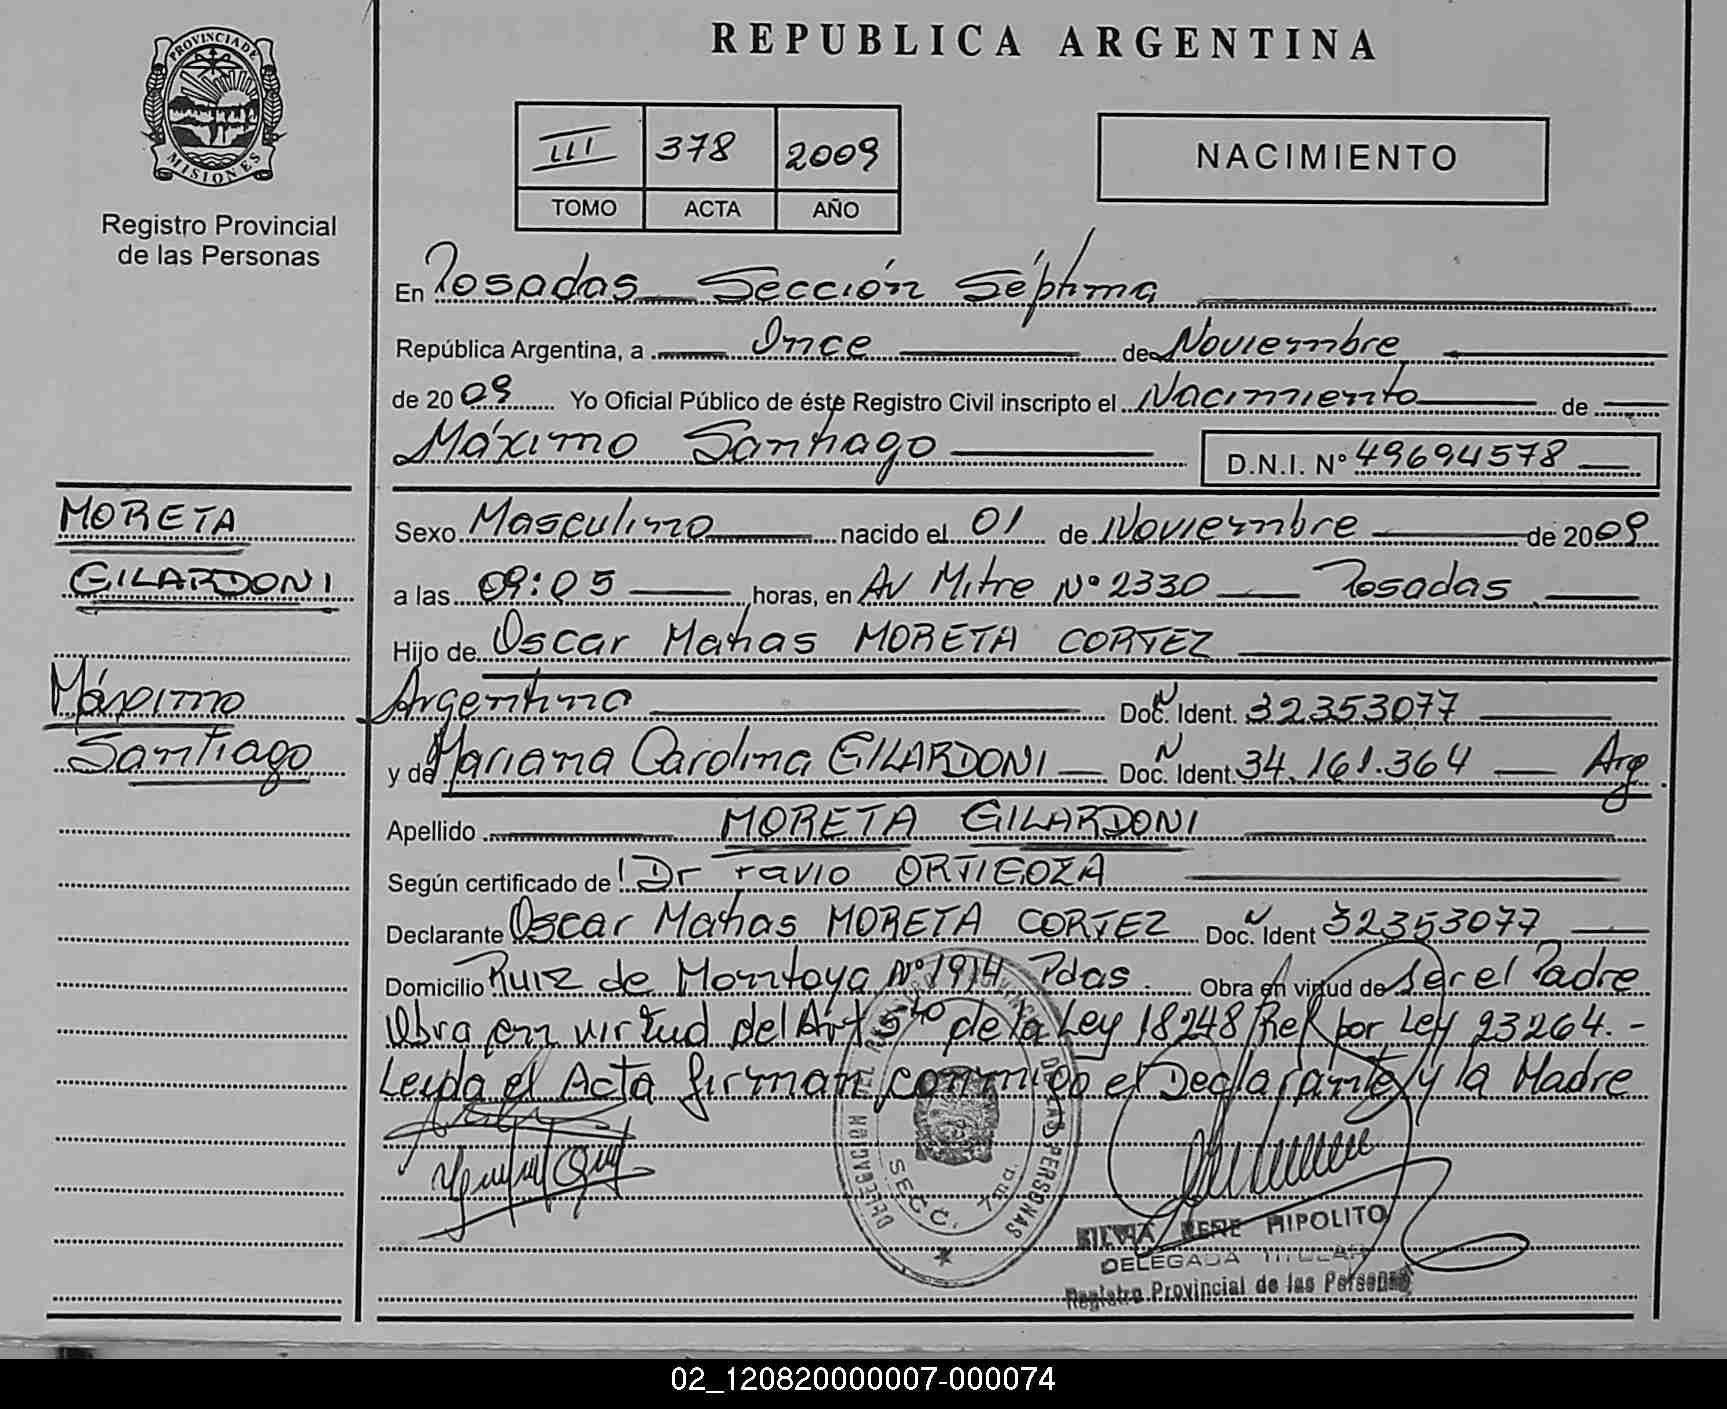 PROVINCIA DE
MISIONES
Registro Provincial
de las Personas
MORETA
GILARDONI
Máximo
Santiago
REPUBLICA ARGENTINA
III 378 2009
TOMO ACTA AÑO
NACIMIENTO
En Posadas Sección Séptima
República Argentina, a Once de Noviembre
de 2009 Yo Oficial Público de éste Registro Civil inscripto el Nacimiento de
Máximo Santiago D.N.I. N° 49694578
Sexo Masculino nacido el 01 de Noviembre de 2009
a las 09:05 horas, en Av Mitre N° 2330 Posadas
Hijo de Oscar Matias MORETA CORTEZ
Argentino Doc. Ident. 32353077
y de Mariana Carolina GILARDONI Doc. Ident. 34.161.364 Arg.
Apellido MORETA GILARDONI
Según certificado de Dr ORTIGOZA
Declarante Oscar Matias MORETA CORTEZ Doc. Ident 32353077
Domicilio Ruiz de Montoya N° 1914 Pdas. Obra en virtud de ser el Padre
Obra en virtud del Art 5to de la Ley 18248 Ref por Ley 23264.-
Leida el Acta firman conmigo el Declarante y la Madre
DELEGACION DEL REGISTRO PROVINCIAL DE LAS PERSONAS
SECC. 7ma.
SILVIA RENE HIPOLITO
DELEGADA TITULAR
Registro Provincial de las Personas
02_120820000007-000074